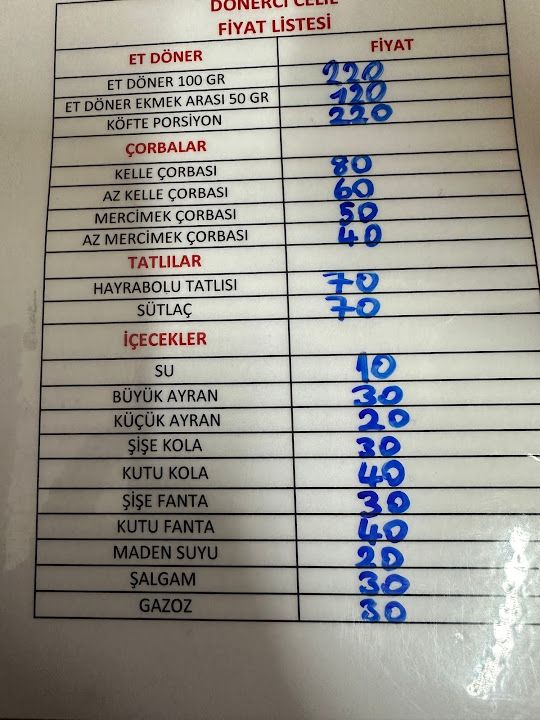 DÖNERCİ CELİL
FİYAT LİSTESİ
ET DÖNER FİYAT
ET DÖNER 100 GR 220
ET DÖNER EKMEK ARASI 50 GR 120
KÖFTE PORSİYON 220
ÇORBALAR
KELLE ÇORBASI 80
AZ KELLE ÇORBASI 60
MERCİMEK ÇORBASI 50
AZ MERCİMEK ÇORBASI 40
TATLILAR
HAYRABOLU TATLISI 70
SÜTLAÇ 70
İÇECEKLER
SU 10
BÜYÜK AYRAN 30
KÜÇÜK AYRAN 20
ŞİŞE KOLA 30
KUTU KOLA 40
ŞİŞE FANTA 30
KUTU FANTA 40
MADEN SUYU 20
ŞALGAM 30
GAZOZ 30